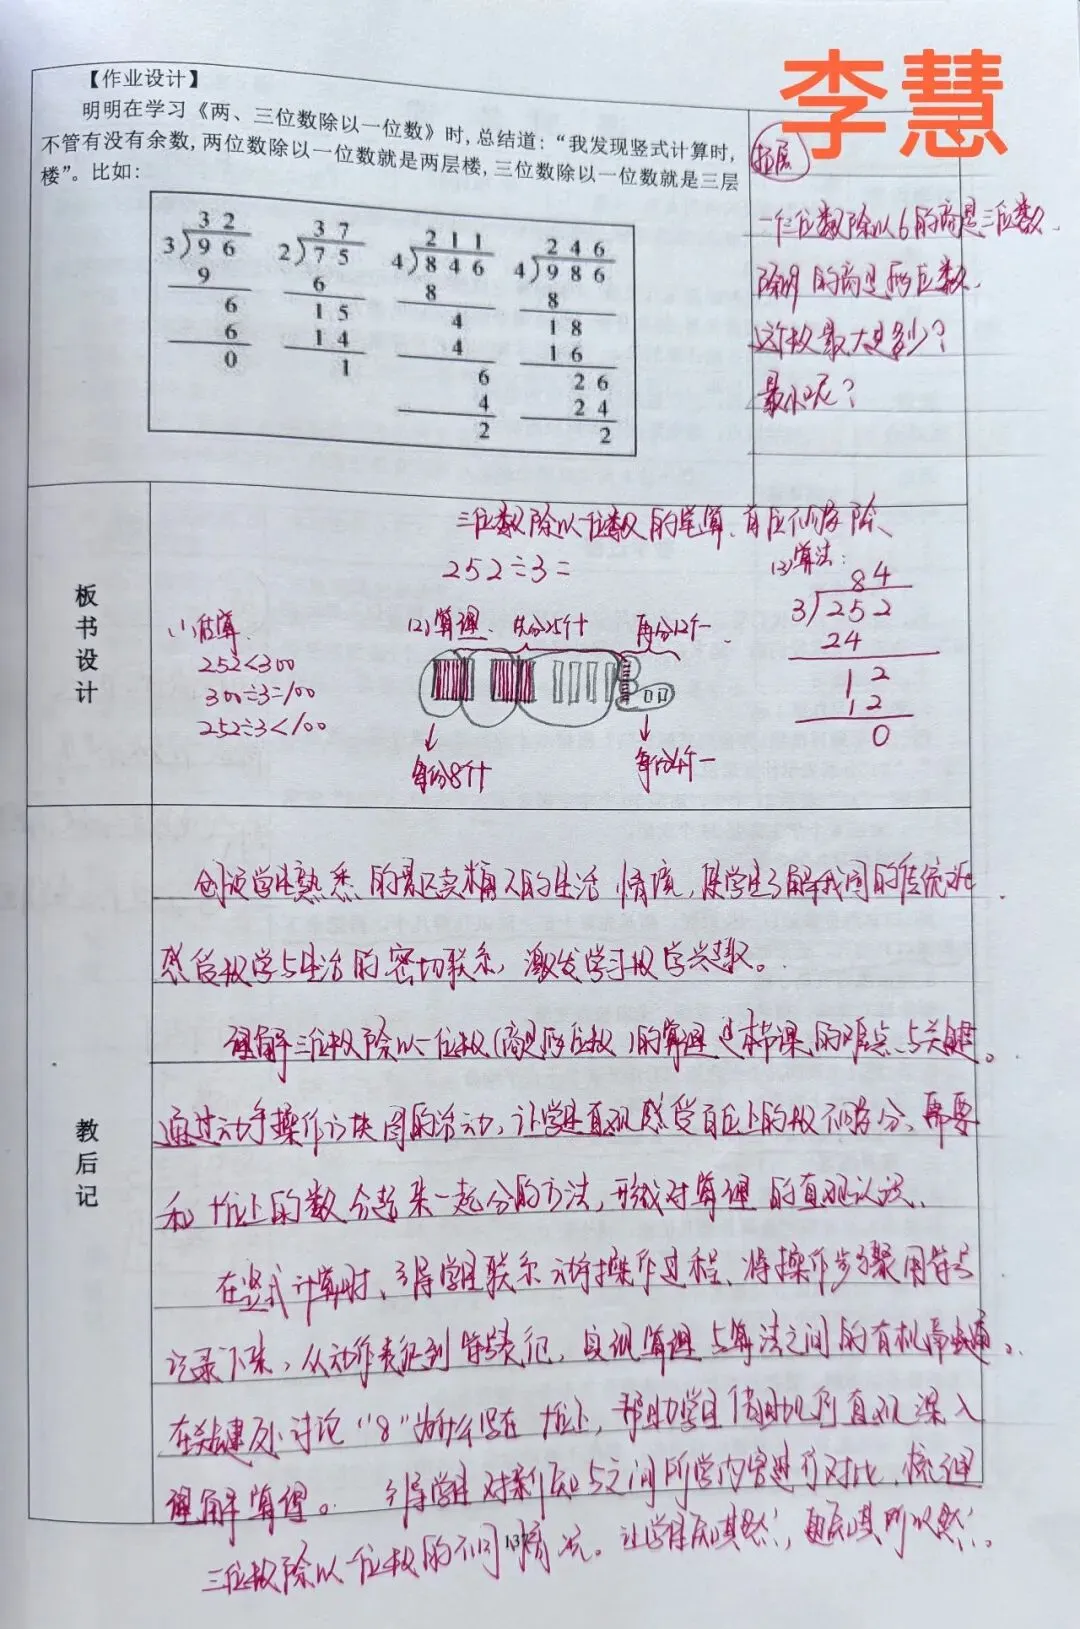 李慧
【作业设计】
明明在学习《两、三位数除以一位数》时,总结道:“我发现竖式计算时,
不管有没有余数,两位数除以一位数就是两层楼,三位数除以一位数就是三层
楼”。比如:
32
3)96
9
6
6
0
37
2)75
6
15
14
1
211
4)846
8
4
4
6
4
2
246
4)986
8
18
16
26
24
2
拓展
一个三位数除以6的商是三位数,
除以9的商是两位数,
这个数最大是多少?
最小呢?
板书设计
三位数除以一位数的笔算,首位不够除
252÷3=
(1)估算
252<300
300÷3=100
252÷3<100
(2)算理
先分25个十
再分12个一
每份8个十
每份4个一
(3)算法:
84
3)252
24
12
12
0
教后记
创设学生熟悉的景区卖的生活情境,使学生了解我国的传统
感受数学与生活的密切联系,激发学习数学兴趣。
理解三位数除以一位数(商是两位数)的算理是本节课的难点与关键。
通过动手操作方块图的活动,让学生直观感受首位上的数不够分,需要
和十位上的数合起来一起分的方法,形成对算理的直观认识。
在竖式计算时,引导学生联系动手操作过程,将操作步骤用符号
记录下来,从动作表征到符号表征,实现算理与算法之间的有机沟通。
在关键处讨论“8”为什么写在十位上,帮助学生借助几何直观深入
理解算理。引导学生对新知与之间所学内容进行对比,梳理
三位数除以一位数的不同情况。让学生知其然,更知其所以然。
137